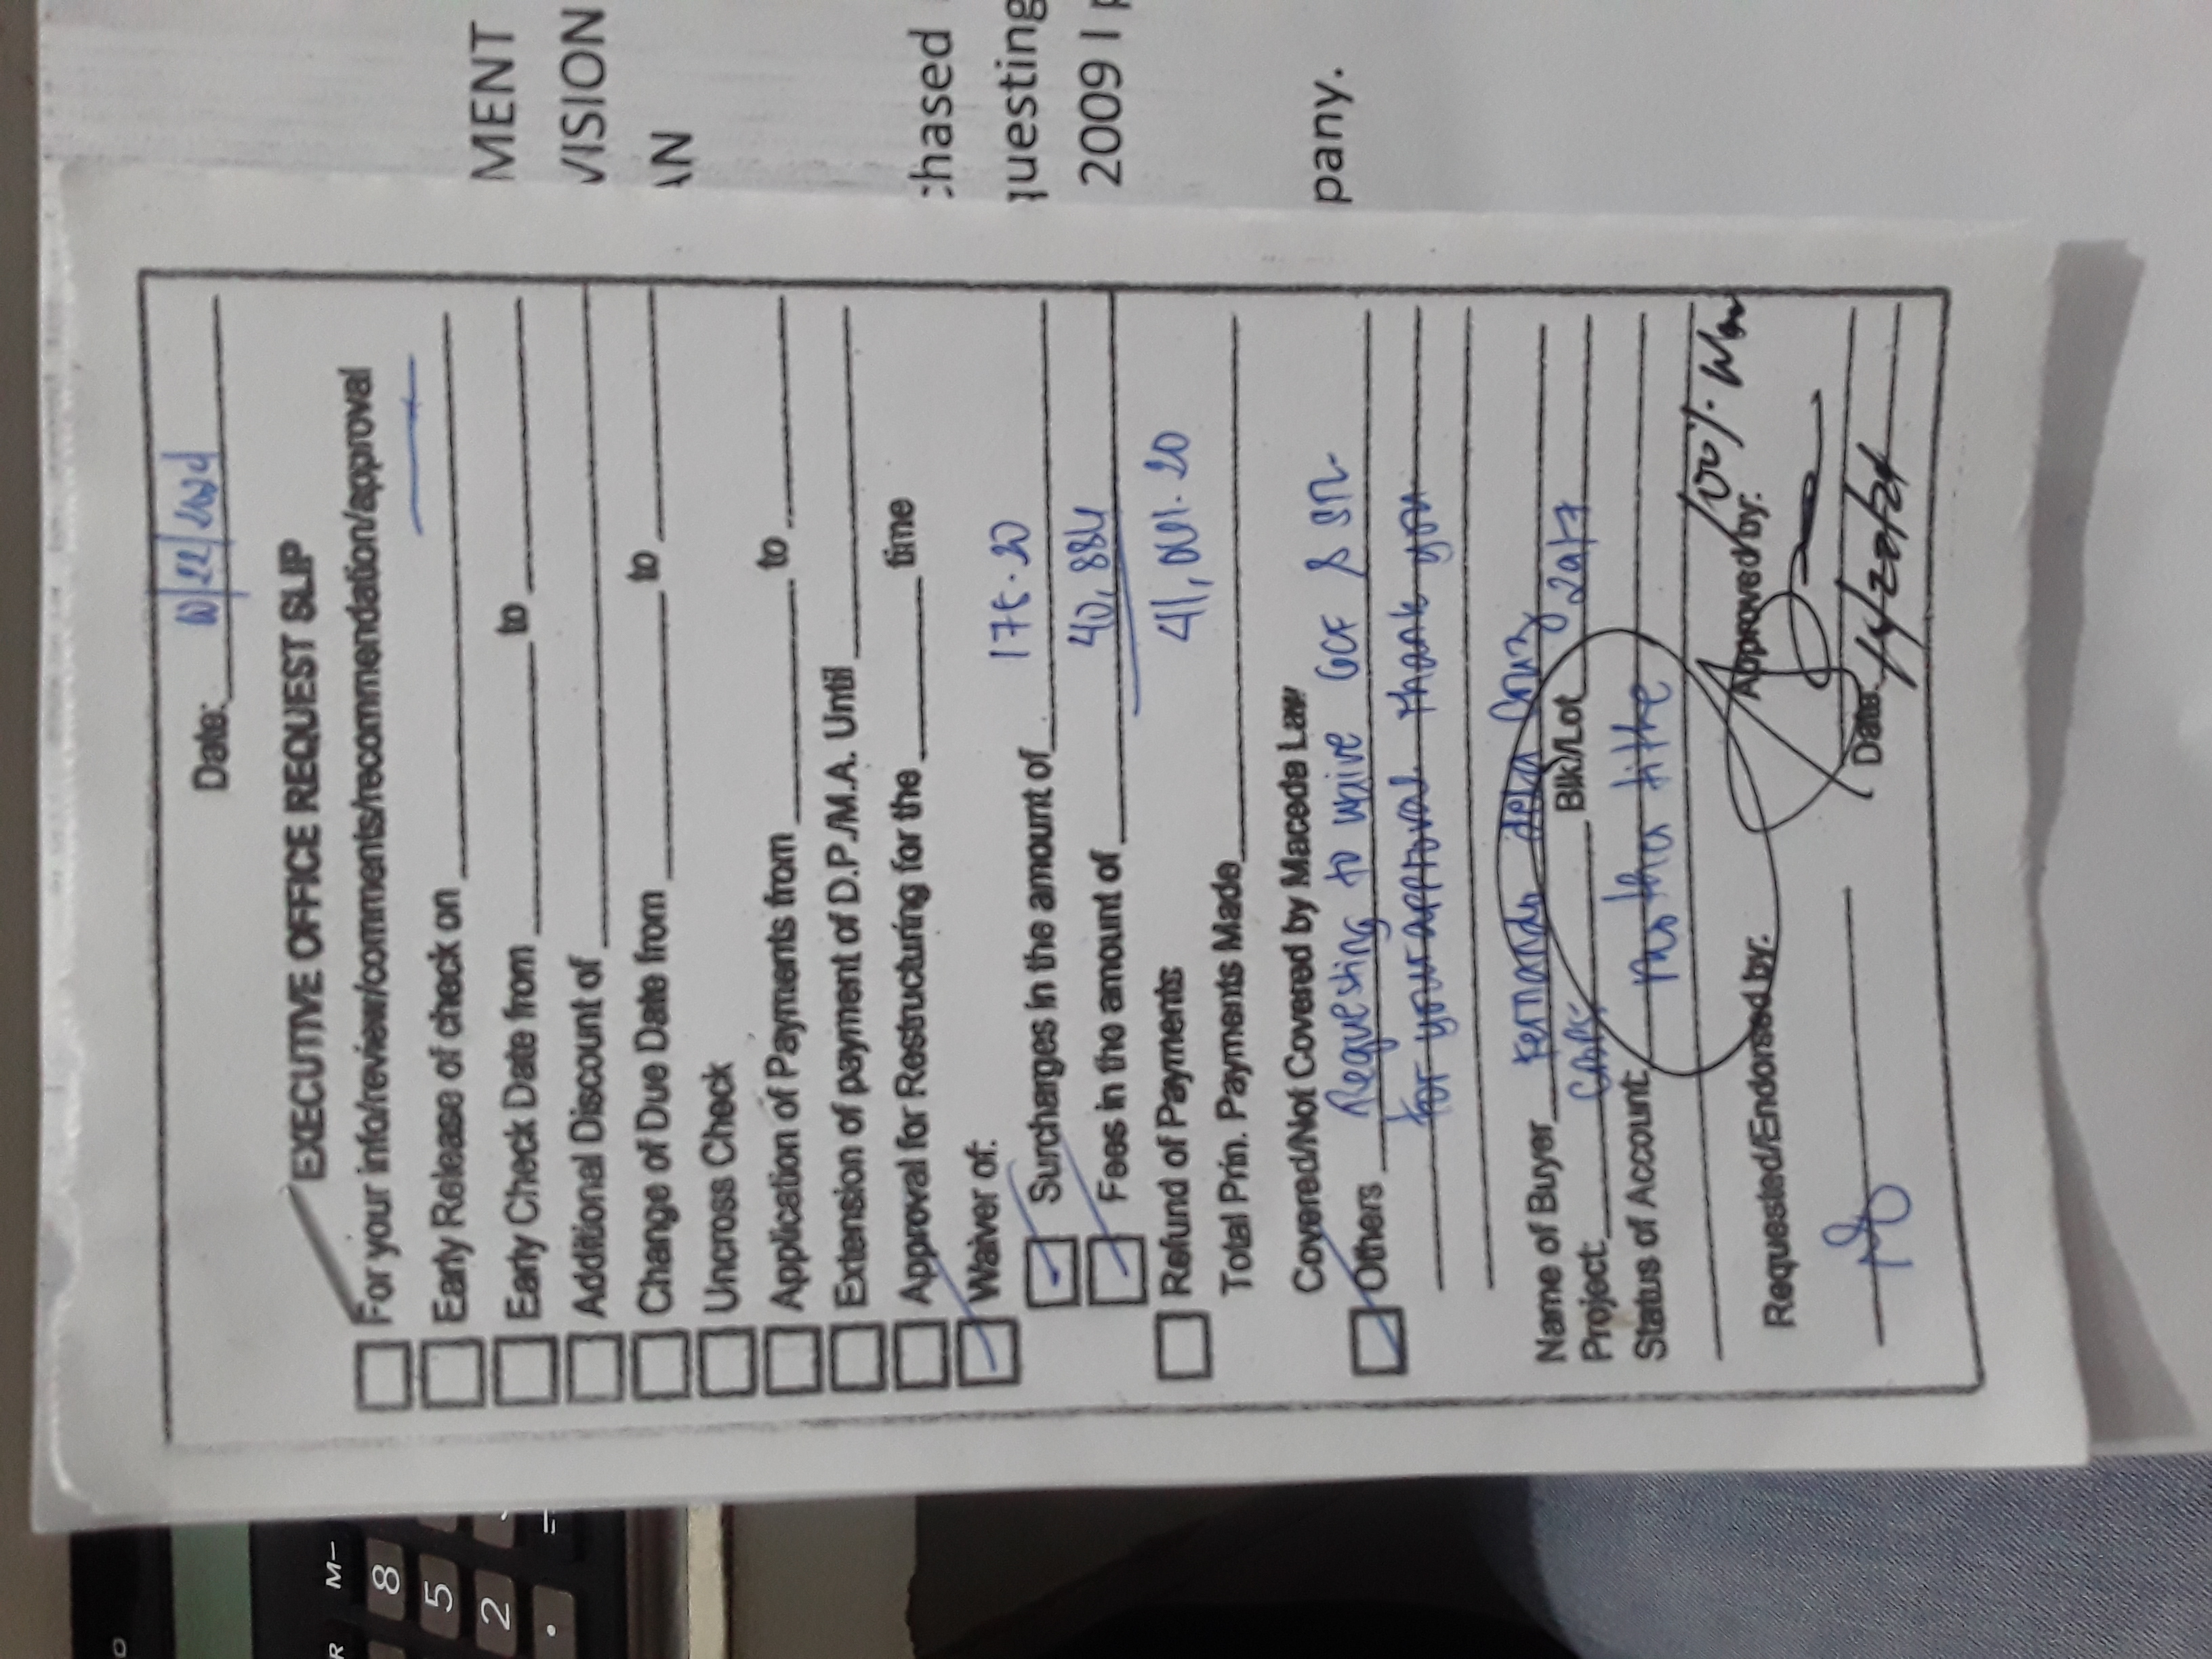 Date: 10/22/2024
EXECUTIVE OFFICE REQUEST SLIP
For your info/review/comments/recommendation/approval
Early Release of check on
Early Check Date from to
Additional Discount of
Change of Due Date from to
Uncross Check
Application of Payments from to
Extension of payment of D.P./M.A. Until
Approval for Restructuring for the time
Waiver of:
Surcharges in the amount of
Fees in the amount of 40,886
Refund of Payments
Total Prin. Payments Made
Covered/Not Covered by Maceda Law
Others Requesting to waive GCF &
for your approval thank you
Name of Buyer Fernando dela Cruz
Project: Blk/Lot
Status of Account: mother
100%
Requested/Endorsed by: Approved by:
Date:
R M-
8
5
2
. =
MENT
VISION
AN
chased
questing
2009 I p
pany.